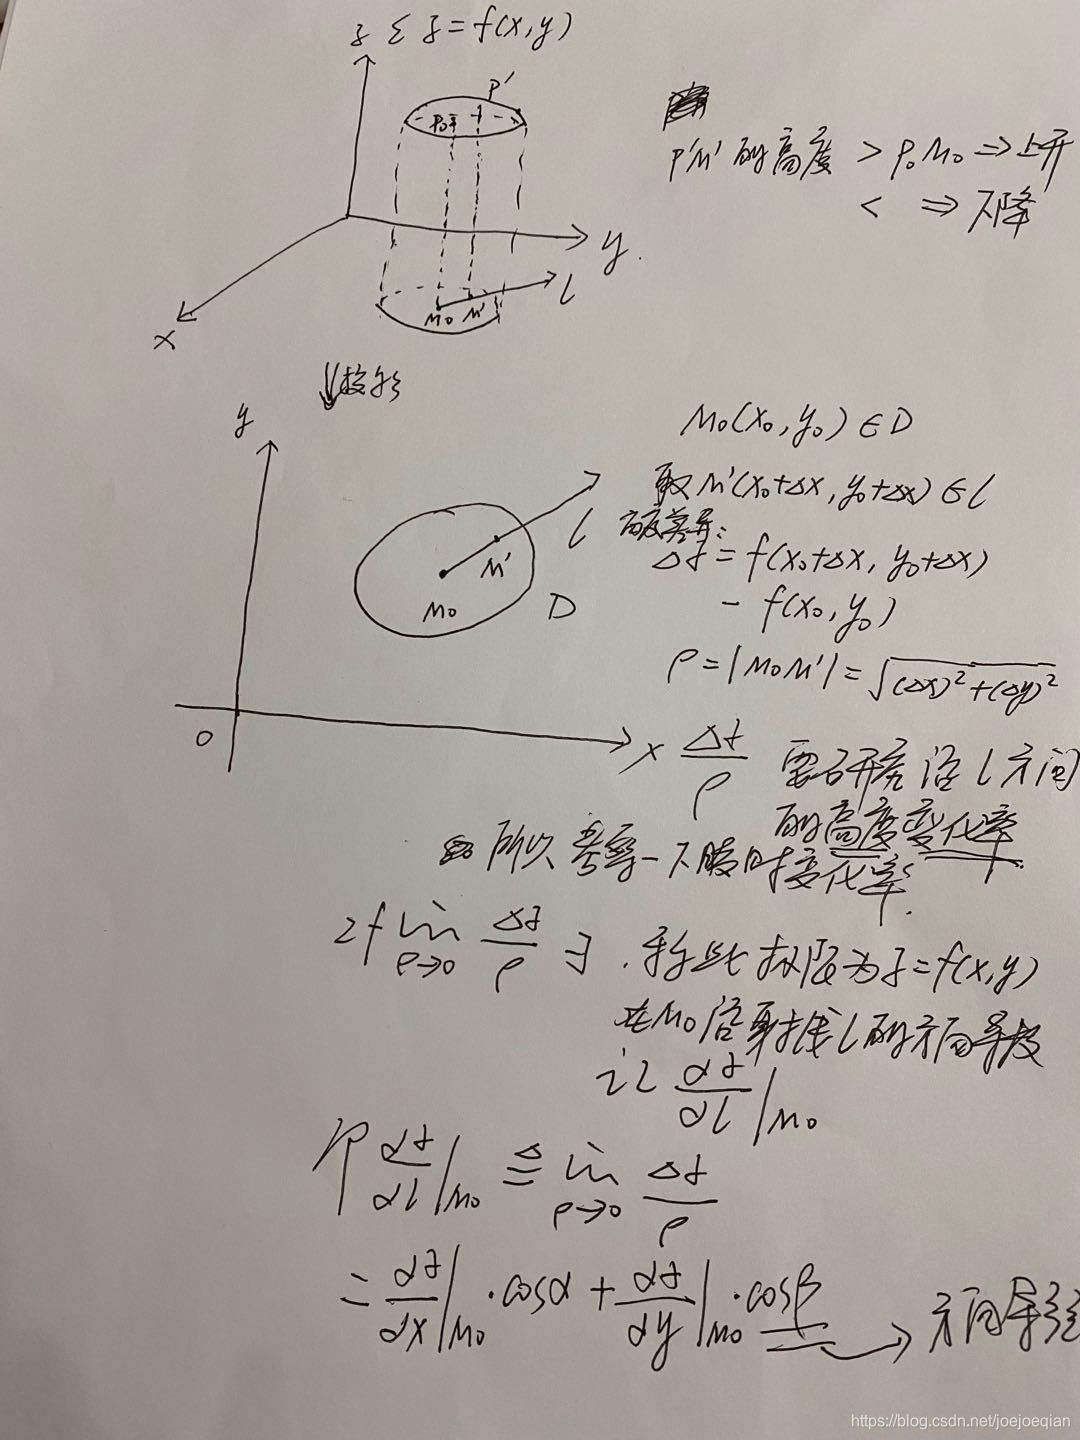 z Σ z=f(x,y)
P'
P0
y
M0 M' l
x
P'M'的高度 > P0M0 ⇒ 上升
< ⇒ 下降
投影
y
M0(x0,y0)∈D
取M'(x0+Δx,y0+Δx)∈l
l
高度差异:
Δz=f(x0+Δx,y0+Δx)
M'
M0
D
-f(x0,y0)
ρ=|M0M'|=√(Δx)²+(Δy)²
0
x
Δz/ρ 要研究沿l方向
的高度变化率
所以考察一下瞬时变化率.
If lim ρ→0 Δz/ρ ∃.称此极限为z=f(x,y)
在M0沿射线l的方向导数
记 dz/dl|M0
即 dz/dl|M0 ≜ lim ρ→0 Δz/ρ
= dz/dx|M0 ·cosα + dz/dy|M0 ·cosβ → 方向导数
https://blog.csdn.net/joejoeqian